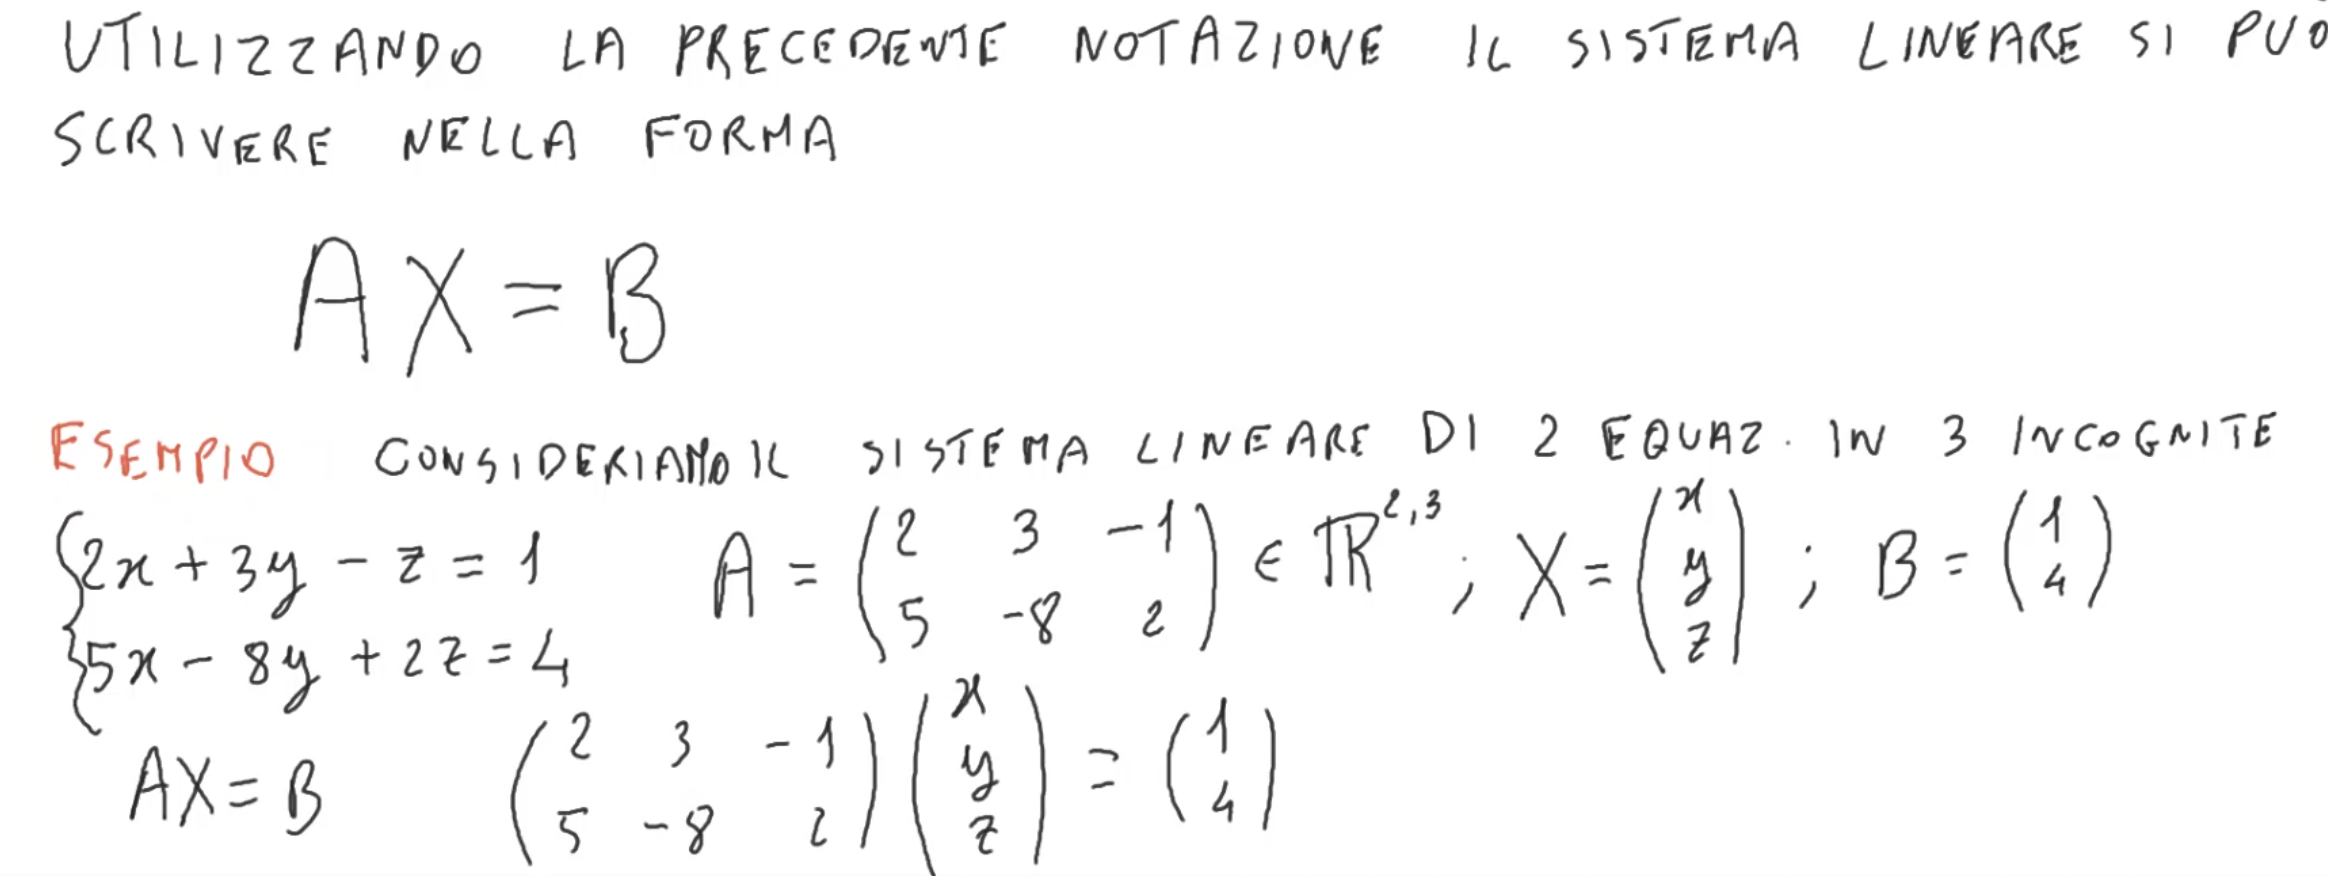 UTILIZZANDO LA PRECEDENTE NOTAZIONE IL SISTEMA LINEARE SI PUÒ
SCRIVERE NELLA FORMA
AX = B
ESEMPIO CONSIDERIAMO IL SISTEMA LINEARE DI 2 EQUAZ. IN 3 INCOGNITE
{ 2x + 3y - z = 1
{ 5x - 8y + 2z = 4
A = ( 2 3 -1 ; 5 -8 2 ) ∈ ℝ^{2,3} ; X = ( x ; y ; z ) ; B = ( 1 ; 4 )
AX = B ( 2 3 -1 ; 5 -8 2 ) ( x ; y ; z ) = ( 1 ; 4 )